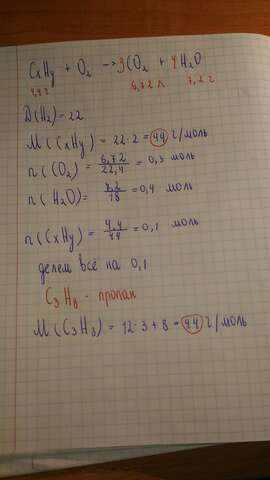 CxHy + O₂ → 3CO₂ + 4H₂O
4,4 г 6,72 л 7,2 г
D(H₂)=22
M(CxHy) = 22·2 = 44 г/моль
n(CO₂) = 6,72/22,4 = 0,3 моль
n(H₂O)= 7,2/18 = 0,4 моль
n(CxHy) = 4,4/44 = 0,1 моль
делем всё на 0,1
C₃H₈ - пропан
M(C₃H₈) = 12·3 + 8 = 44 г/моль